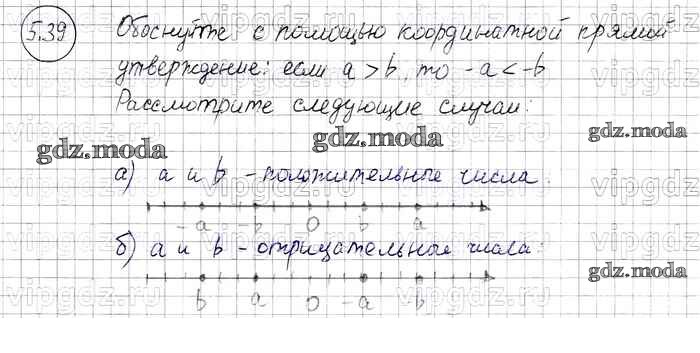 5.39 Обоснуйте с помощью координатной прямой
утверждение: если a > b, то -a < -b
Рассмотрите следующие случаи:
gdz.moda gdz.moda gdz.moda
а) a и b - положительные числа:
-a -b 0 b a
б) a и b - отрицательные числа:
gdz.moda
b a 0 -a -b
vipgdz.ru